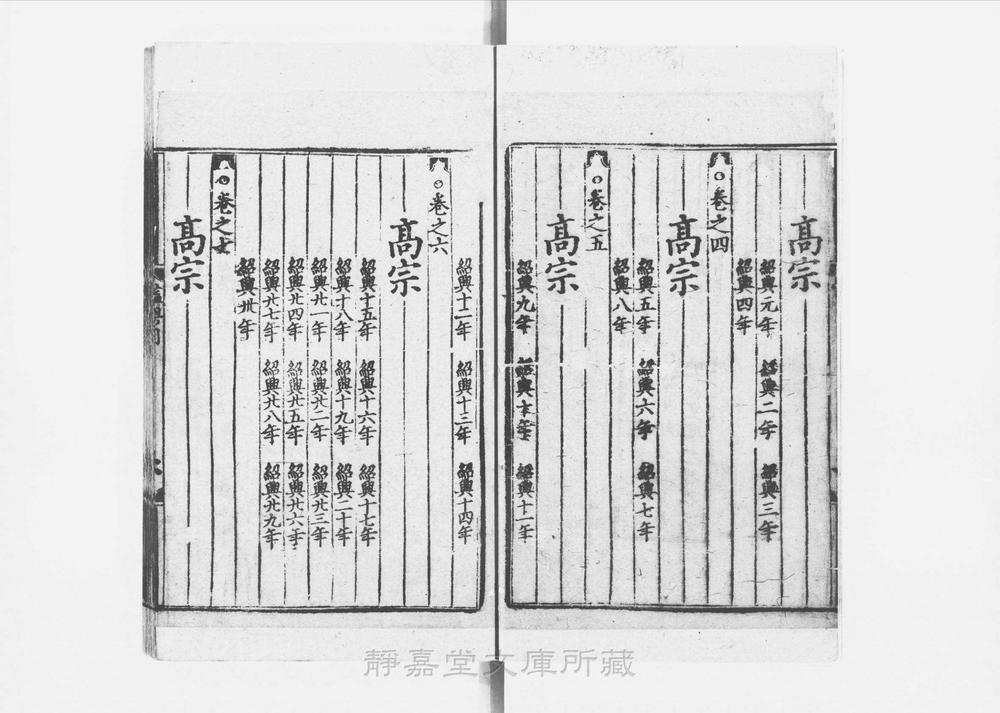 髙宗
紹興元年　紹興二年　紹興三年
紹興四年
○卷之四
髙宗
紹興五年　紹興六年　紹興七年
紹興八年
○卷之五
髙宗
紹興九年　紹興十年　紹興十一年
紹興十二年　紹興十三年　紹興十四年
○卷之六
髙宗
紹興十五年　紹興十六年　紹興十七年
紹興十八年　紹興十九年　紹興二十年
紹興廿一年　紹興廿二年　紹興廿三年
紹興廿四年　紹興廿五年　紹興廿六年
紹興廿七年　紹興廿八年　紹興廿九年
紹興卅年
○卷之七
髙宗
靜嘉堂文庫所藏